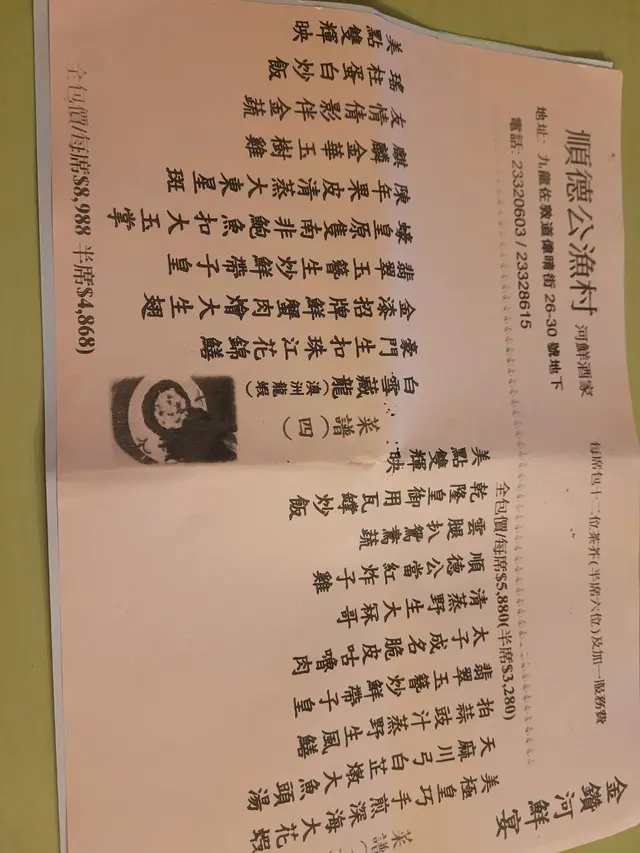 順德公漁村 河鮮酒家
每席包十二位茶芥(半席六位)及加一服務費
地址: 九龍佐敦道偉晴街 26-30 號地下
電話: 23320603 / 23328615
金鑽河鮮宴
菜譜
美極皇巧手煎深海大花蝦
天麻川弓白芷燉大魚頭湯
拍蒜豉汁蒸野生風鱔
翡翠玉簪炒鮮帶子皇
太子成名脆皮咕嚕肉
清蒸野生大冧哥
順德公當紅炸子雞
雲腿扒鴛鴦蔬
乾隆皇御用瓦罉炒飯
美點雙輝映
全包價/每席$5,880(半席$3,280)
菜譜(四)
白雪藏龍(澳洲龍蝦)
豪門生扣珠江花錦鱔
金漆招牌鮮蟹肉燴大生翅
翡翠玉簪炒生鮮帶子皇
蠔皇原隻南非鮑魚扣大玉掌
陳年果皮清蒸大東星斑
麒麟金華玉樹雞
友情倩影伴金蔬
瑤柱蛋白炒飯
美點雙輝映
全包價/每席$8,988 半席$4,868)